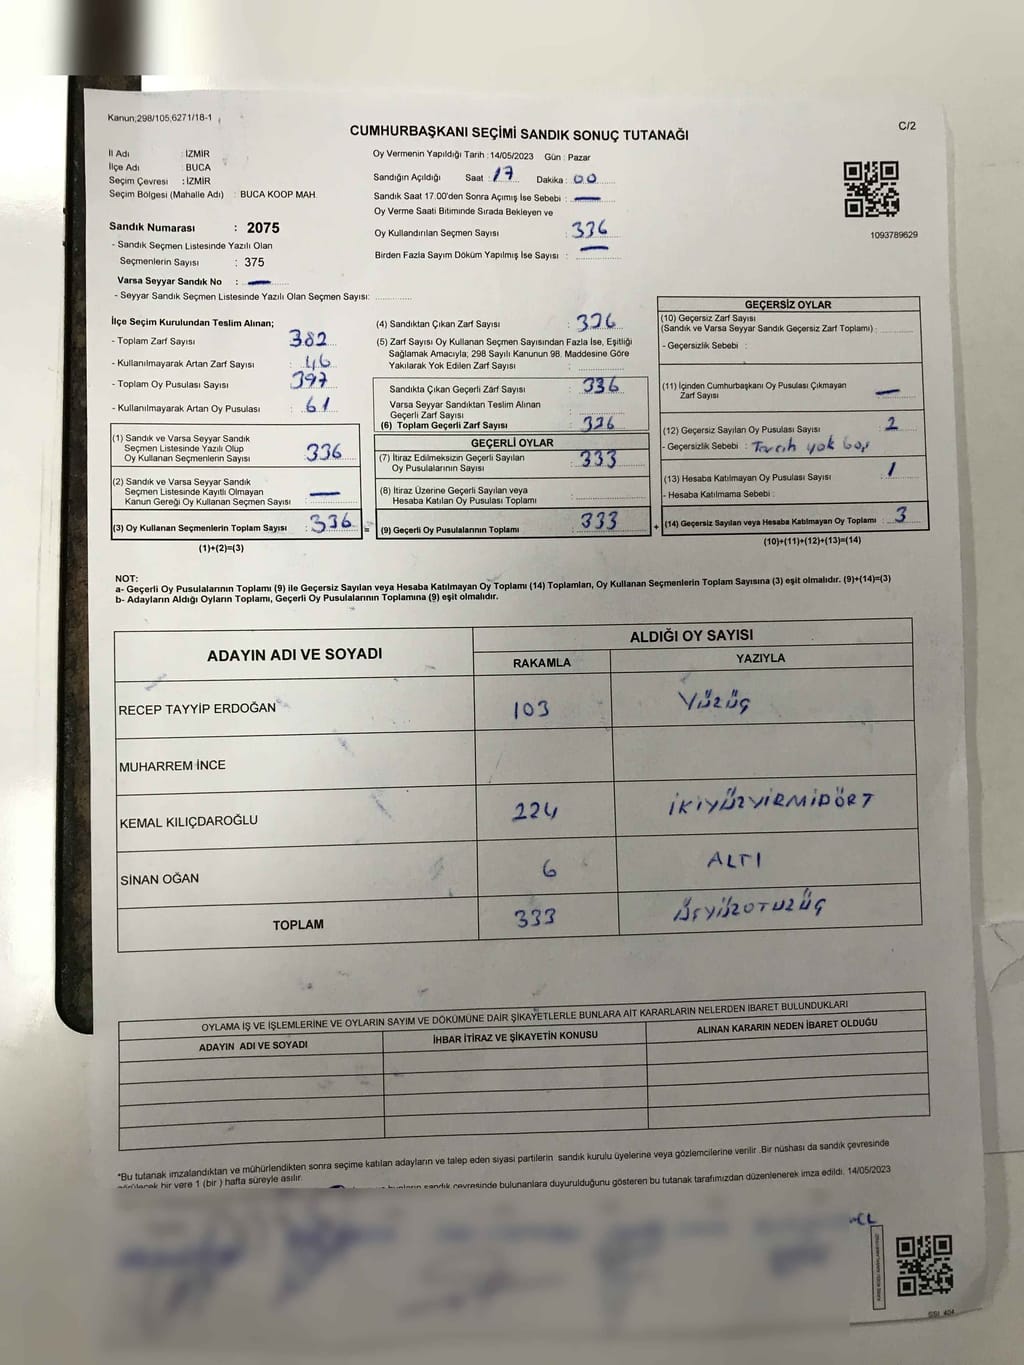 Kanun;298/105,6271/18-1
C/2
CUMHURBAŞKANI SEÇİMİ SANDIK SONUÇ TUTANAĞI
İl Adı : İZMİR
İlçe Adı : BUCA
Seçim Çevresi : İZMİR
Seçim Bölgesi (Mahalle Adı) : BUCA KOOP MAH.
Sandık Numarası : 2075
- Sandık Seçmen Listesinde Yazılı Olan
Seçmenlerin Sayısı : 375
Varsa Seyyar Sandık No : —
- Seyyar Sandık Seçmen Listesinde Yazılı Olan Seçmen Sayısı:
Oy Vermenin Yapıldığı Tarih : 14/05/2023 Gün : Pazar
Sandığın Açıldığı Saat : 17 Dakika : 00
Sandık Saat 17.00'den Sonra Açımış İse Sebebi : —
Oy Verme Saati Bitiminde Sırada Bekleyen ve
Oy Kullandırılan Seçmen Sayısı : 336
Birden Fazla Sayım Döküm Yapılmış İse Sayısı : —
1093789629
İlçe Seçim Kurulundan Teslim Alınan;
- Toplam Zarf Sayısı : 382
- Kullanılmayarak Artan Zarf Sayısı : 46
- Toplam Oy Pusulası Sayısı : 397
- Kullanılmayarak Artan Oy Pusulası : 61
(1) Sandık ve Varsa Seyyar Sandık
Seçmen Listesinde Yazılı Olup
Oy Kullanan Seçmenlerin Sayısı : 336
(2) Sandık ve Varsa Seyyar Sandık
Seçmen Listesinde Kayıtlı Olmayan
Kanun Gereği Oy Kullanan Seçmen Sayısı : —
(3) Oy Kullanan Seçmenlerin Toplam Sayısı : 336
(1)+(2)=(3)
(4) Sandıktan Çıkan Zarf Sayısı : 336
(5) Zarf Sayısı Oy Kullanan Seçmen Sayısından Fazla İse, Eşitliği
Sağlamak Amacıyla; 298 Sayılı Kanunun 98. Maddesine Göre
Yakılarak Yok Edilen Zarf Sayısı :
Sandıkta Çıkan Geçerli Zarf Sayısı : 336
Varsa Seyyar Sandıktan Teslim Alınan
Geçerli Zarf Sayısı :
(6) Toplam Geçerli Zarf Sayısı : 336
GEÇERLİ OYLAR
(7) İtiraz Edilmeksizin Geçerli Sayılan
Oy Pusulalarının Sayısı : 333
(8) İtiraz Üzerine Geçerli Sayılan veya
Hesaba Katılan Oy Pusulası Toplamı :
= (9) Geçerli Oy Pusulalarının Toplamı : 333
GEÇERSİZ OYLAR
(10) Geçersiz Zarf Sayısı
(Sandık ve Varsa Seyyar Sandık Geçersiz Zarf Toplamı) :
- Geçersizlik Sebebi :
(11) İçinden Cumhurbaşkanı Oy Pusulası Çıkmayan
Zarf Sayısı : —
(12) Geçersiz Sayılan Oy Pusulası Sayısı : 2
- Geçersizlik Sebebi : Tercih yok boş
(13) Hesaba Katılmayan Oy Pusulası Sayısı : 1
- Hesaba Katılmama Sebebi :
+ (14) Geçersiz Sayılan veya Hesaba Katılmayan Oy Toplamı : 3
(10)+(11)+(12)+(13)=(14)
NOT:
a- Geçerli Oy Pusulalarının Toplamı (9) ile Geçersiz Sayılan veya Hesaba Katılmayan Oy Toplamı (14) Toplamları, Oy Kullanan Seçmenlerin Toplam Sayısına (3) eşit olmalıdır. (9)+(14)=(3)
b- Adayların Aldığı Oyların Toplamı, Geçerli Oy Pusulalarının Toplamına (9) eşit olmalıdır.
ADAYIN ADI VE SOYADI
ALDIĞI OY SAYISI
RAKAMLA YAZIYLA
RECEP TAYYİP ERDOĞAN 103 YÜZÜÇ
MUHARREM İNCE
KEMAL KILIÇDAROĞLU 224 İKİYÜZYİRMİDÖRT
SİNAN OĞAN 6 ALTI
TOPLAM 333 ÜÇYÜZOTUZÜÇ
OYLAMA İŞ VE İŞLEMLERİNE VE OYLARIN SAYIM VE DÖKÜMÜNE DAİR ŞİKAYETLERLE BUNLARA AİT KARARLARIN NELERDEN İBARET BULUNDUKLARI
ADAYIN ADI VE SOYADI
İHBAR İTİRAZ VE ŞİKAYETİN KONUSU
ALINAN KARARIN NEDEN İBARET OLDUĞU
*Bu tutanak imzalandıktan ve mühürlendikten sonra seçime katılan adayların ve talep eden siyasi partilerin sandık kurulu üyelerine veya gözlemcilerine verilir .Bir nüshası da sandık çevresinde
görülecek bir yere 1 (bir ) hafta süreyle asılır.
bunların sandık çevresinde bulunanlara duyurulduğunu gösteren bu tutanak tarafımızdan düzenlenerek imza edildi. 14/05/2023